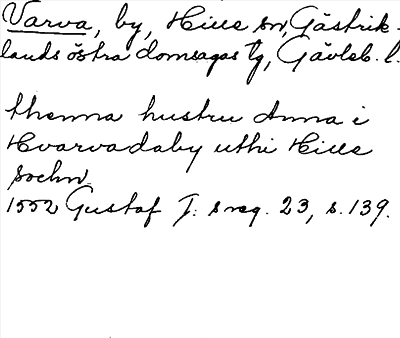 Varva, by, Hille sn, Gästrik-
lands östra domsagas tg, Gävleb. l.
thenna hustru Anna i
Hvarvadaby uthi Hille
sochn.
1552 Gustaf I: s reg. 23, s. 139.